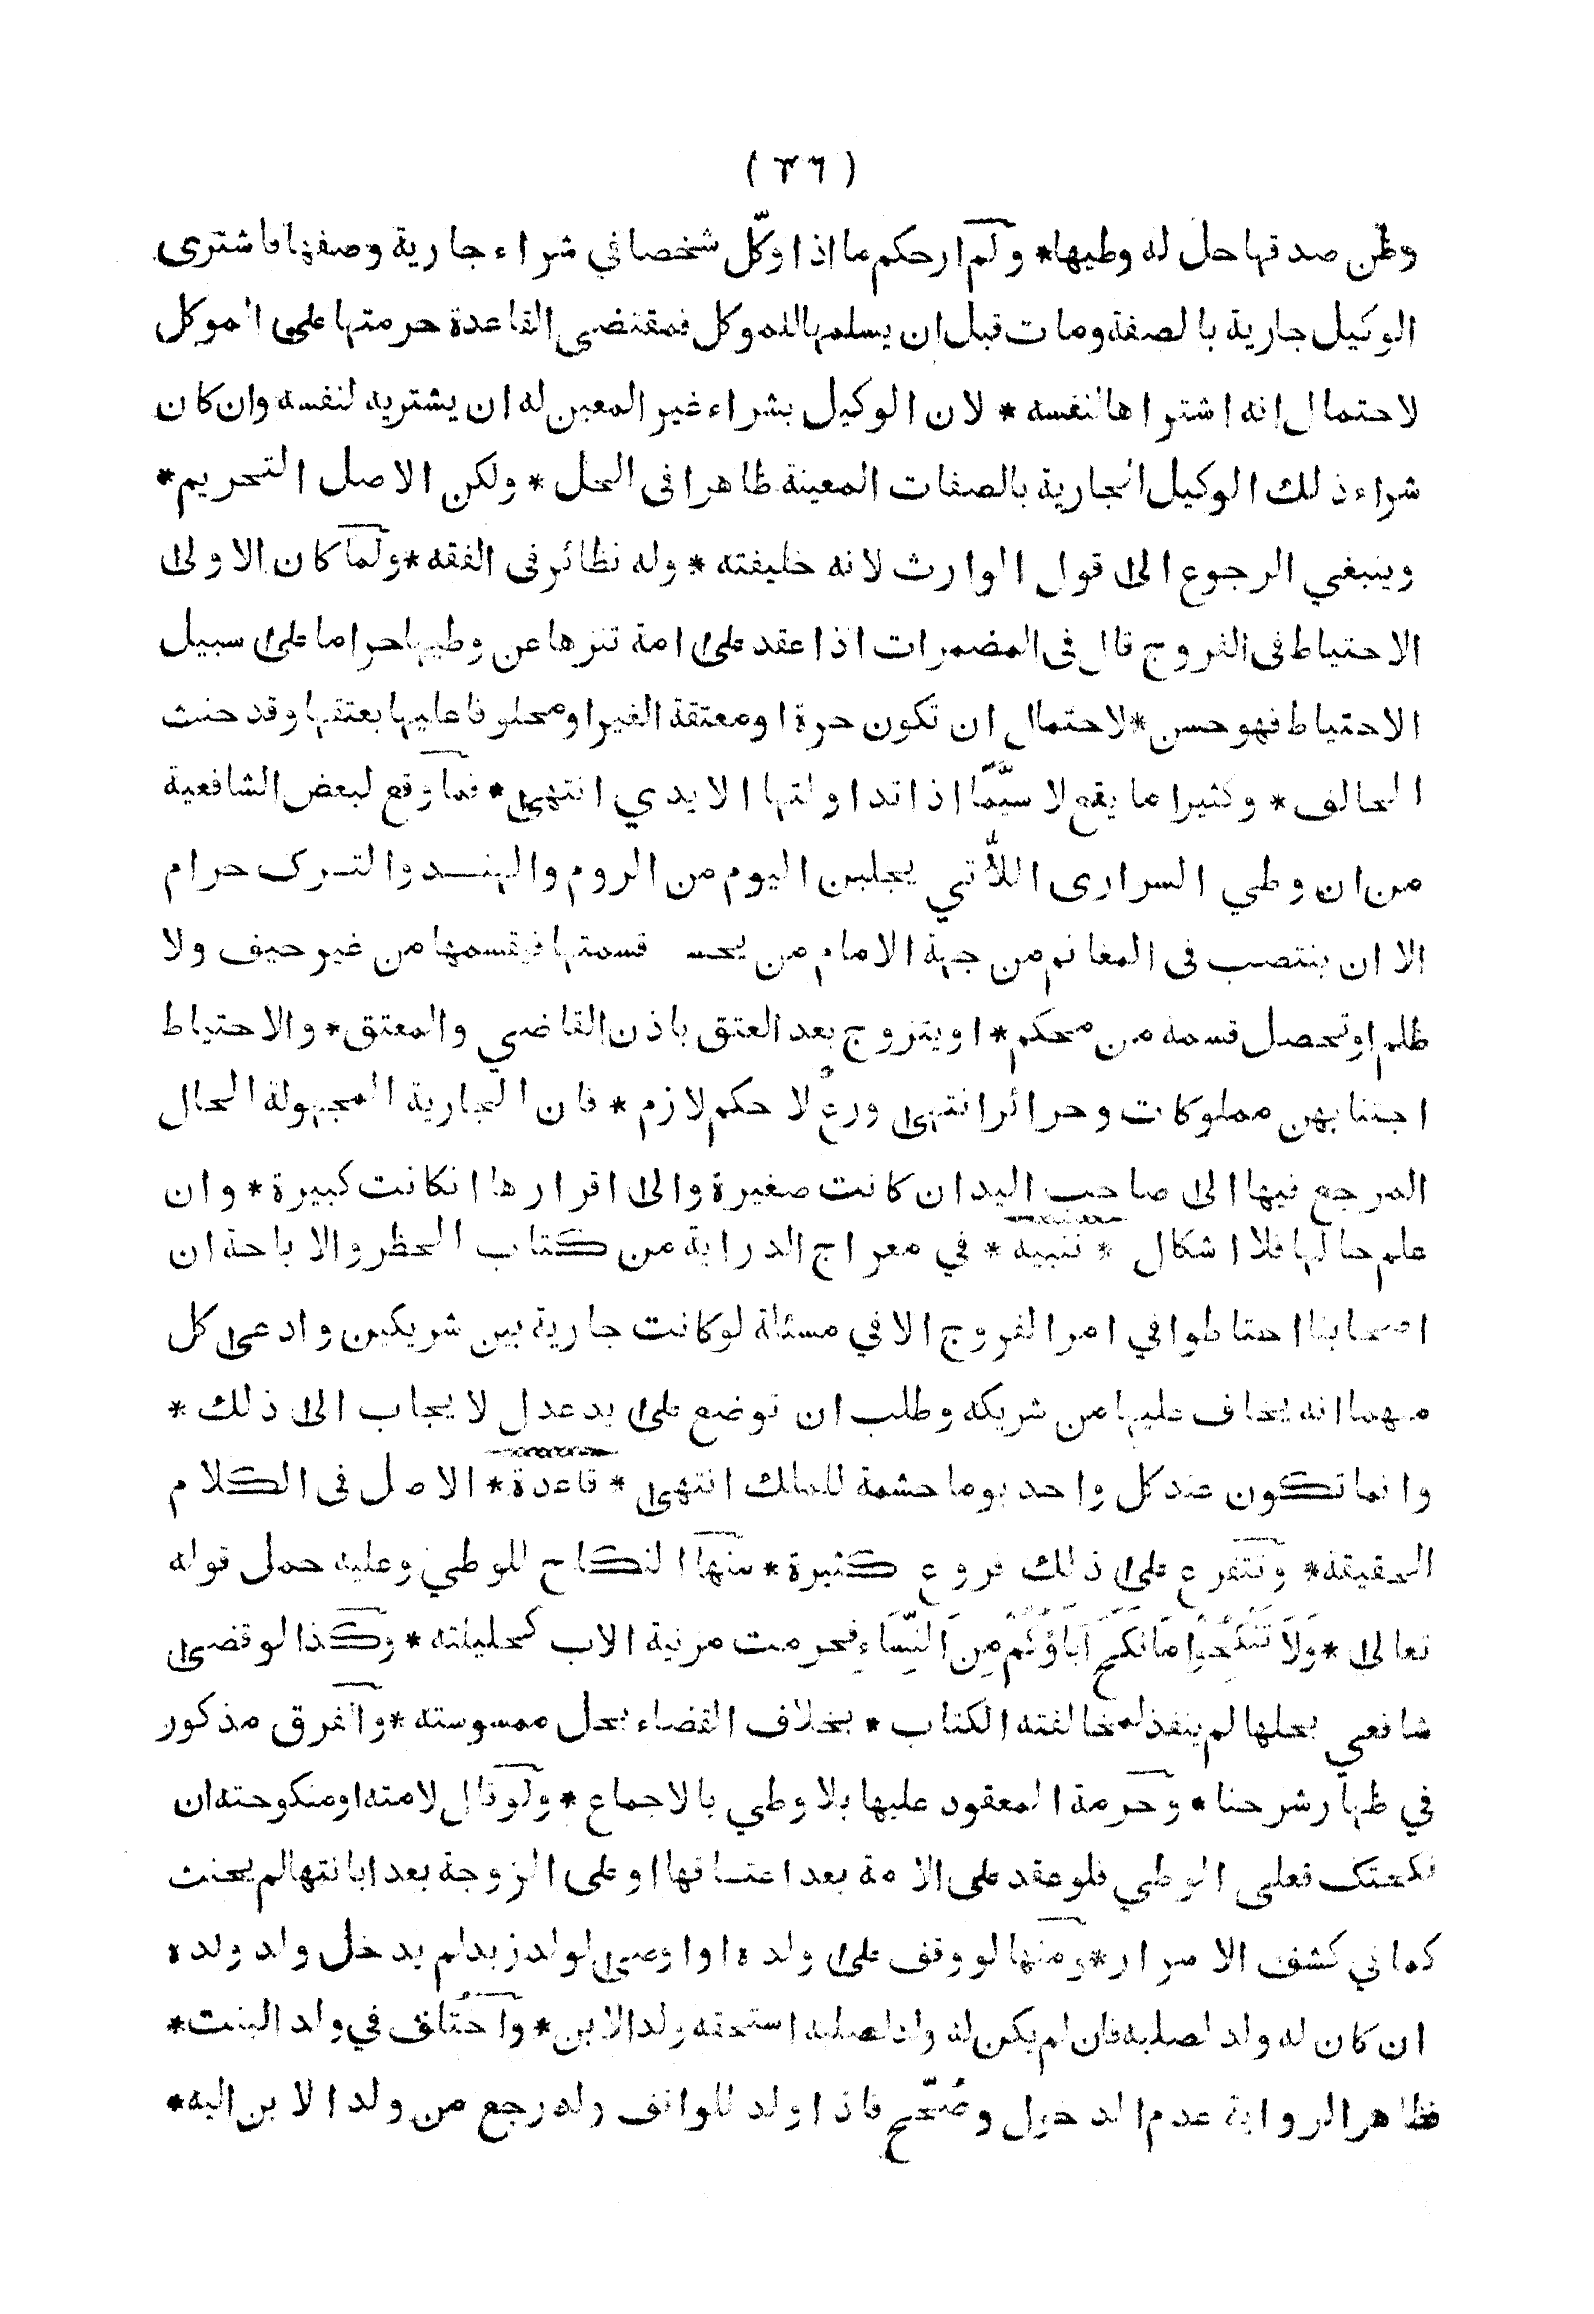 ( ٣٦ )
وظن صدقها حل له وطيها* ولم ار حكم ما اذا وكّل شخصا في شراء جارية وصفها فاشترى
الوكيل جارية بالصفة ومات قبل ان يسلمها الى الموكل فمقتضى القاعدة حرمتها على الموكل
لاحتمال انه اشتراها لنفسه * لان الوكيل بشراء غير المعين له ان يشتريه لنفسه وان كان
شراء ذلك الوكيل الجارية بالصفات المعينة ظاهرا فى الحل * ولكن الاصل التحريم*
وينبغي الرجوع الى قول الوارث لانه خليفته * وله نظائر فى الفقه *ولما كان الاولى
الاحتياط فى الفروج قال فى المضمرات اذا عقد على امة تنزها عن وطيها حراما على سبيل
الاحتياط فهو حسن *لاحتمال ان تكون حرة او معتقة الغير او محلوفا عليها بعتقها وقد حنث
الحالف * وكثيرا ما يقع لا سيّما اذا تداولتها الايدي انتهى* فما وقع لبعض الشافعية
من ان وطي السرارى اللاّتي يجلبن اليوم من الروم والهند والترك حرام
الا ان ينتصب فى المغانم من جهة الامام من يحسـ قسمتها فيقسمها من غير حيف ولا
ظلم او تحصل قسمة من محكم* او يتزوج بعد العتق باذن القاضي والمعتق* والاحتياط
اجتنابهن مملوكات وحرائر انتهى ورعٌ لا حكم لازم * فان الجارية المجهولة الحال
المرجع فيها الى صاحب اليد ان كانت صغيرة والى اقرارها انكانت كبيرة * وان
علم حالها فلا اشكال * تنبيه * في معراج الدراية من كتاب الحظر والاباحة ان
اصحابنا احتاطوا في امر الفروج الا في مسئلة لو كانت جارية بين شريكين وادعى كل
منهما انه يخاف عليها من شريكه وطلب ان توضع على يد عدل لا يجاب الى ذلك *
وانما تكون عند كل واحد يوما حشمة للملك انتهى * قاعدة* الاصل فى الكلام
الحقيقة* وتتفرع على ذلك فروع كثيرة* منها النكاح للوطي وعليه حمل قوله
تعالى *وَلَا تَنْكِحُوا مَا نَكَحَ آبَاؤُكُمْ مِنَ النِّسَاءِ فحرمت مزنية الاب كحليلته * وكذا لو قضى
شافعي بحلها لم ينفذ لمخالفته الكتاب * بخلاف القضاء بحل ممسوسته *والفرق مذكور
في ظهار شرحنا * وحرمة المعقود عليها بلا وطي بالاجماع *ولو قال لامته او منكوحته ان
نكحتك فعلى الوطي فلو عقد على الامة بعد اعتاقها او على الزوجة بعد ابانتها لم يحنث
كما في كشف الاسرار *ومنها لو وقف على ولده او اوصى لولد زيد لم يدخل ولد ولده
ان كان له ولد لصلبه فان لم يكن له ولد لصلبه استحقه ولد الابن* واختلف في ولد البنت*
فظاهر الرواية عدم الدخول وصُحّح فاذا ولد للواقف ولد رجع من ولد الابن اليه*